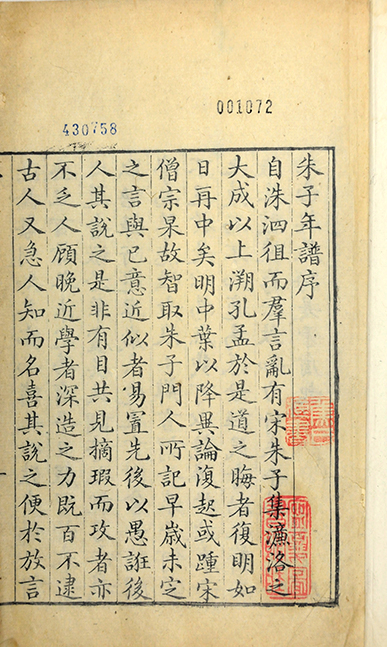 001072
430758
朱子年譜序
自洙泗徂而羣言亂有宋朱子集濂洛之
大成以上溯孔孟於是道之晦者復明如
日再中矣明中葉以降異論復起或踵宋
僧宗杲故智取朱子門人所記早歲未定
之言與已意近似者易置先後以愚誑後
人其說之是非有目共見摘瑕而攻者亦
不乏人顧晚近學者深造之力既百不逮
古人又急人知而名喜其說之便於放言